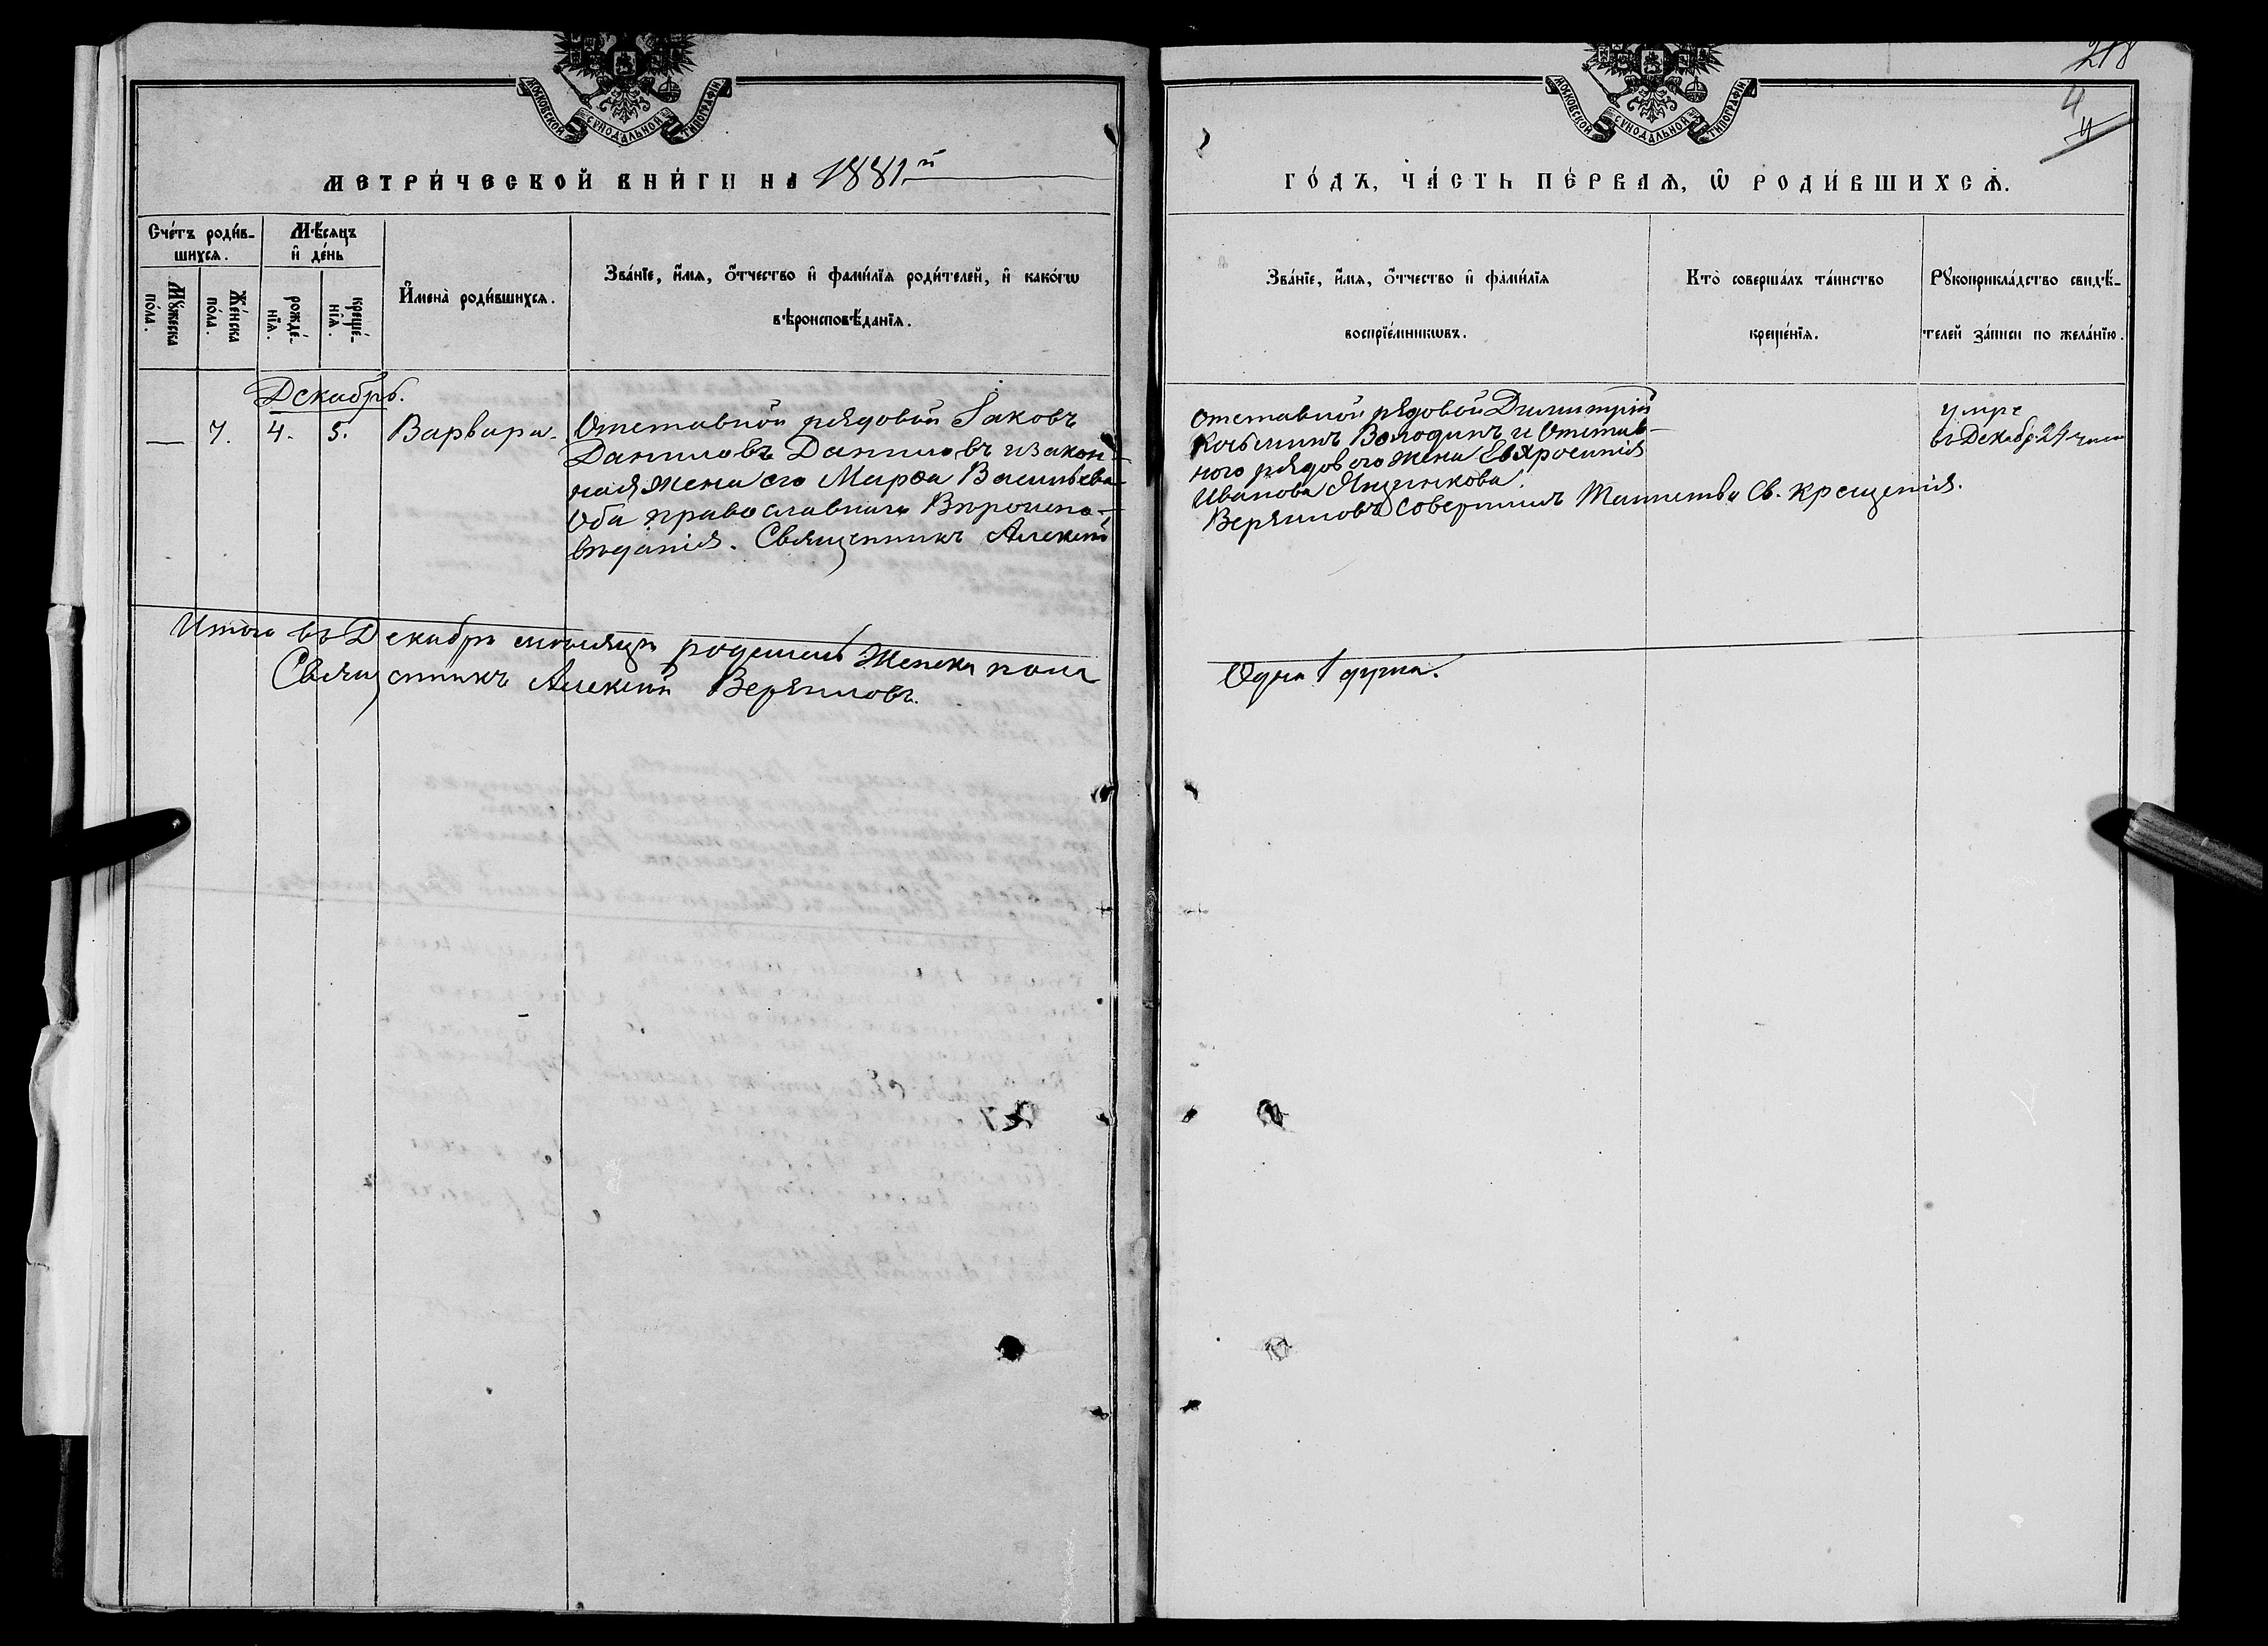 МОСКОВСКОЙ СѴНОДАЛЬНОЙ ТИПОГРАФІИ
МЕТРИ́ЧЕСКОЙ КНИ́ГИ НА 1881.й
Сче́тъ роди́в-
шихсѧ.
Мѣ́сѧцъ
и҆ де́нь
Мꙋ́жеска
по́ла.
Же́нска
по́ла.
рожде́-
нїѧ.
креще́-
нїѧ.
И҆мена̀ роди́вшихсѧ.
Зва́нїе, и҆́мѧ, ѻ҆́тчество и҆ фами́лїѧ роди́телей, и҆ како́гѡ
вѣроисповѣ́данїѧ.
Декабрь.
— 7. 4. 5. Варвара. Отставной рядовой Іаковъ
Даниловъ Даниловъ и закон-
ная жена его Марѳа Васильева
Оба православнаго Вѣроиспо-
вѣданія. Священникъ Алексѣй
Итого въ Декабрѣ мѣсяцѣ родилось Женска пола
Священникъ Алексѣй Веряниловъ.
218
4
4
МОСКОВСКОЙ СѴНОДАЛЬНОЙ ТИПОГРАФІИ
ГО́ДЪ, ЧА́СТЬ ПЕ́РВАѦ, Ѡ҆ РОДИ́ВШИХСѦ.
Зва́нїе, и҆́мѧ, ѻ҆́тчество и҆ фами́лїѧ
воспрїе́мникѡвъ.
Кто̀ соверша́лъ та́инство
креще́нїѧ.
Рꙋкоприкла́дство свидѣ́-
телей за́писи по жела́нїю.
отставной рядовой Димитрій
Косьминъ Володинъ и Отстав-
ного рядового жена Евфросинія
Иванова
Веряниловъ совершилъ Таинство Св. Крещенія.
умре
въ Декабр. 24 числа
Одна 1 душа.